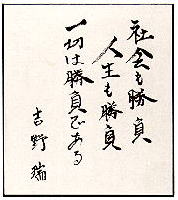 社会も勝負
人生も勝負
一切は勝負である
吉野瑞